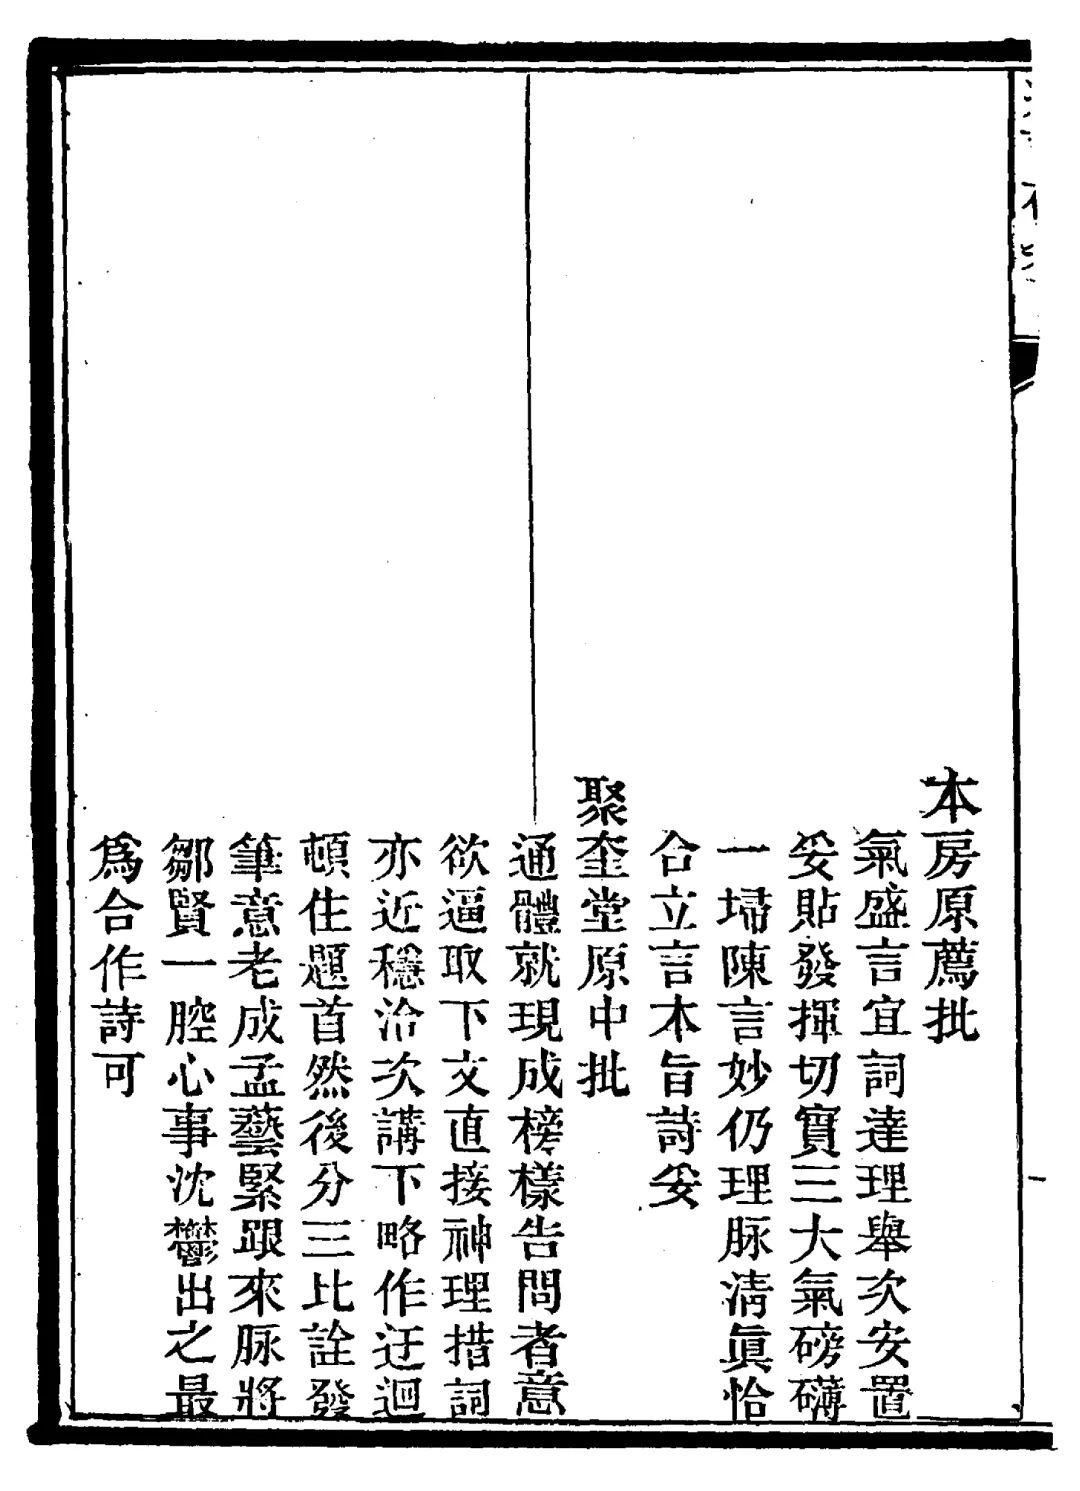 本房原薦批
氣盛言宜詞達理舉次安置
妥貼發揮切實三大氣磅礴
一埽陳言妙仍理脉清眞恰
合立言本旨詩妥
聚奎堂原中批
通體就現成榜樣告問者意
欲逼取下文直接神理措詞
亦近穩洽次講下略作迂迴
頓住題首然後分三比詮發
筆意老成孟藝緊跟來脉將
鄒賢一腔心事沈鬱出之最
爲合作詩可